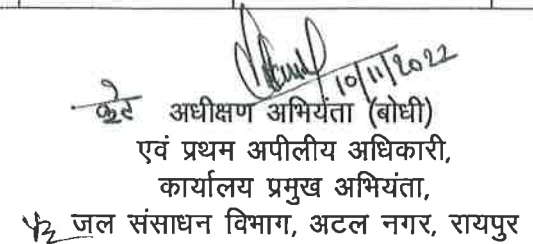 10/11/2022
अधीक्षण अभियंता (बोधी)
एवं प्रथम अपीलीय अधिकारी,
कार्यालय प्रमुख अभियंता,
जल संसाधन विभाग, अटल नगर, रायपुर